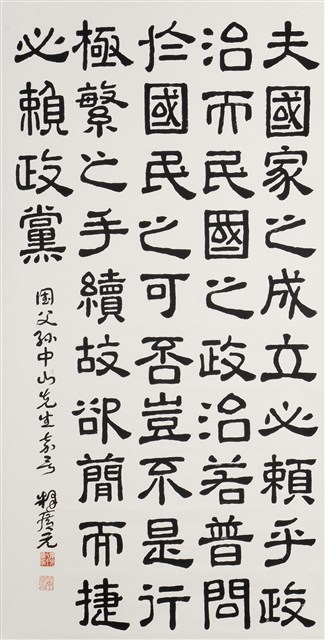 夫國家之成立必賴乎政
治而民國之政治若普問
於國民之可否豈不是行
極繁之手續故欲簡而捷
必賴政黨
國父孫中山先生嘉言 釋廣元